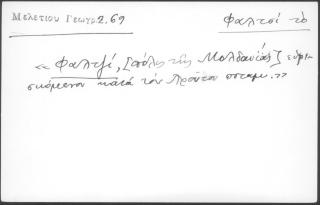 Μελετίου Γεωγρ. 2, 69
Φαλτσί τὸ
« Φαλτζί, [πόλις τῆς Μολδαυίας] εὑρι-
σκόμενον κατὰ τὸν Προῦτον ποταμ. »